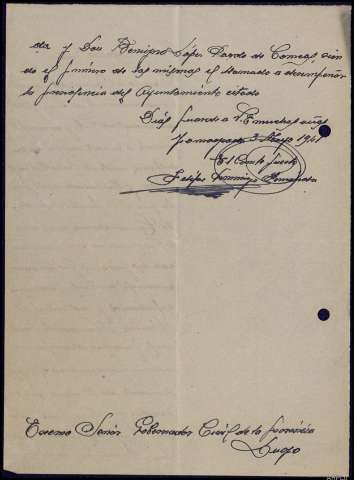 da y Don Benigno López Pardo de Comeas, sien
do el primero de los mismos el llamado a desempeñar
la presidencia del Ayuntamiento citado
Dios guarde a V.E. muchos años
3 Mayo 1941
El
Felipe Domingo
Excmo Señor Gobernador Civil de la provincia
Lugo